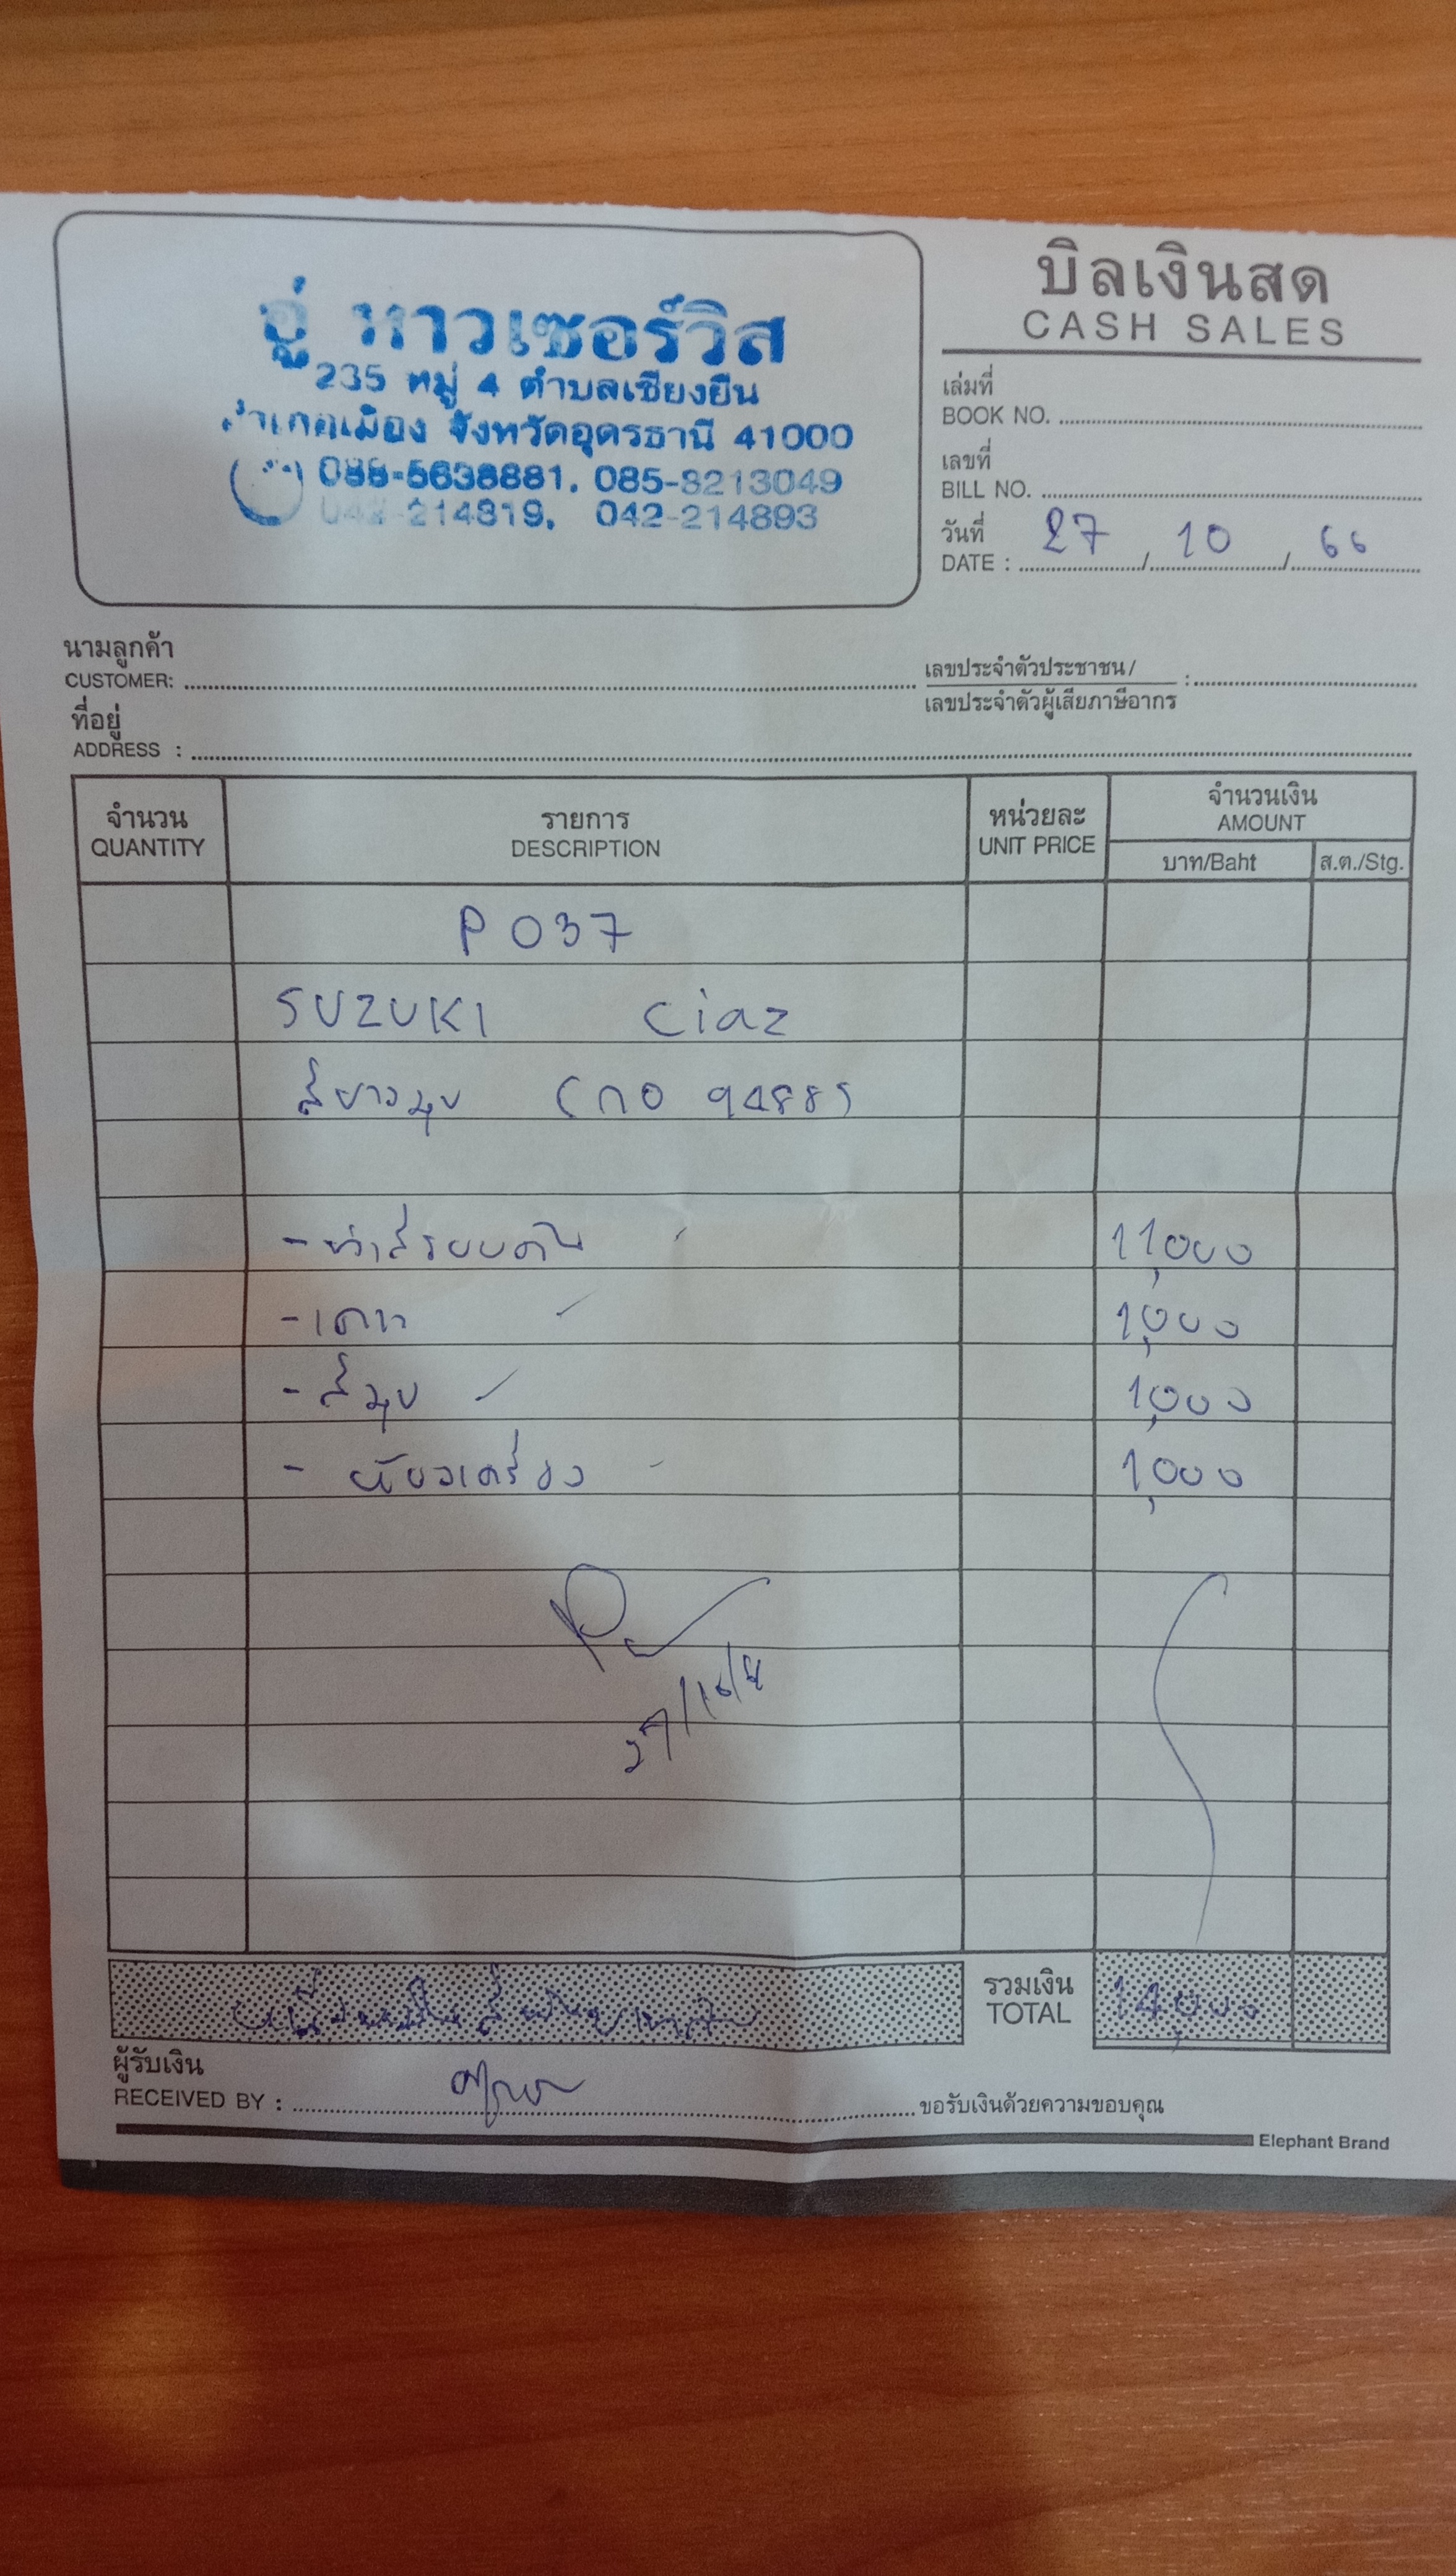 อู่ หาวเซอร์วิส
235 หมู่ 4 ตำบลเชียงยืน
อำเภอเมือง จังหวัดอุดรธานี 41000
085-3213049
042-214893
บิลเงินสด
CASH SALES
เล่มที่
BOOK NO.
เลขที่
BILL NO.
วันที่
DATE : 27 / 10 / 66
นามลูกค้า
CUSTOMER:
เลขประจำตัวประชาชน /
เลขประจำตัวผู้เสียภาษีอากร :
ที่อยู่
ADDRESS :
จำนวน
QUANTITY
รายการ
DESCRIPTION
หน่วยละ
UNIT PRICE
จำนวนเงิน
AMOUNT
บาท/Baht
ส.ต./Stg.
P 037
SUZUKI Ciaz
สีขาวมุข (กอ 9488)
- ทำสีรอบคัน 11,000
- เคาะ 1,000
- สีมุข 1,000
- ห้องเครื่อง 1,000
หนึ่งหมื่นสี่พันบาทถ้วน
รวมเงิน
TOTAL
14,000
ผู้รับเงิน
RECEIVED BY :
ขอรับเงินด้วยความขอบคุณ
Elephant Brand